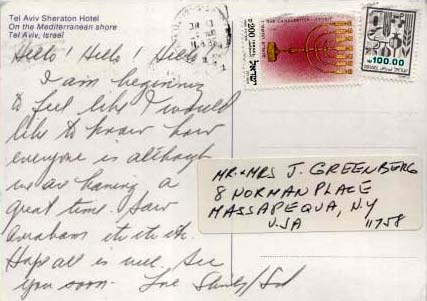 Tel Aviv Sheraton Hotel
On the Mediterranean shore
Tel Aviv, Israel
Hello! Hello! Hello
I am beginning
to feel like I would
like to know how
everyone is although
we are having a
great time. I saw
Hope all is well, See
you soon. Love
MR. + MRS J. GREENBERG
8 NORMAN PLACE
MASSAPEQUA, N.Y
USA 11758
100.00